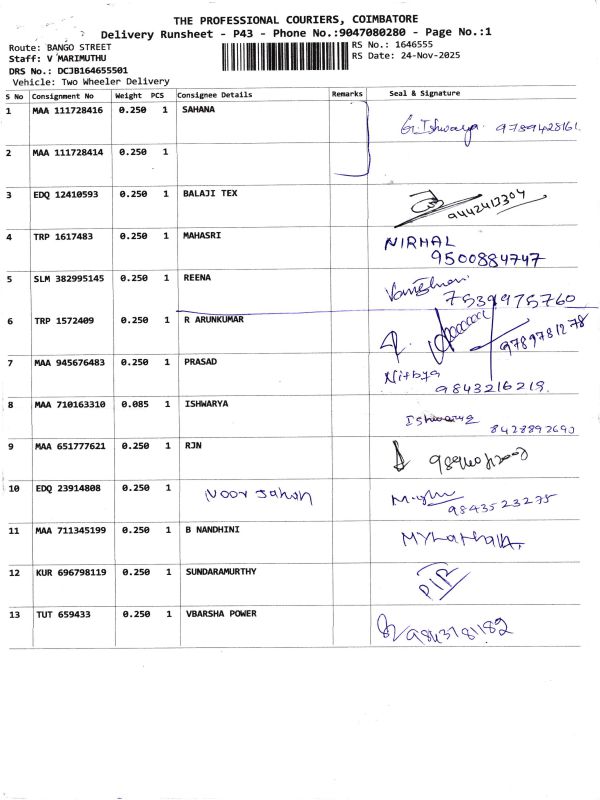 THE PROFESSIONAL COURIERS, COIMBATORE
Delivery Runsheet - P43 - Phone No.:9047080280 - Page No.:1
Route: BANGO STREET
RS No.: 1646555
Staff: V MARIMUTHU
RS Date: 24-Nov-2025
DRS No.: DCJB164655501
Vehicle: Two Wheeler Delivery
S No Consignment No Weight PCS Consignee Details Remarks Seal & Signature
1 MAA 111728416 0.250 1 SAHANA
G. Ishwarya. 9789428161.
2 MAA 111728414 0.250 1
3 EDQ 12410593 0.250 1 BALAJI TEX
9442413304
4 TRP 1617483 0.250 1 MAHASRI NIRMAL
9500884747
5 SLM 382995145 0.250 1 REENA
7539975760
6 TRP 1572409 0.250 1 R ARUNKUMAR
9789781278
7 MAA 945676483 0.250 1 PRASAD Nithya
9843216219.
8 MAA 710163310 0.085 1 ISHWARYA
8428892690
9 MAA 651777621 0.250 1 RJN
10 EDQ 23914808 0.250 1 Noor Jahan
9843523275
11 MAA 711345199 0.250 1 B NANDHINI
12 KUR 696798119 0.250 1 SUNDARAMURTHY
PIR
13 TUT 659433 0.250 1 VBARSHA POWER
9843781182